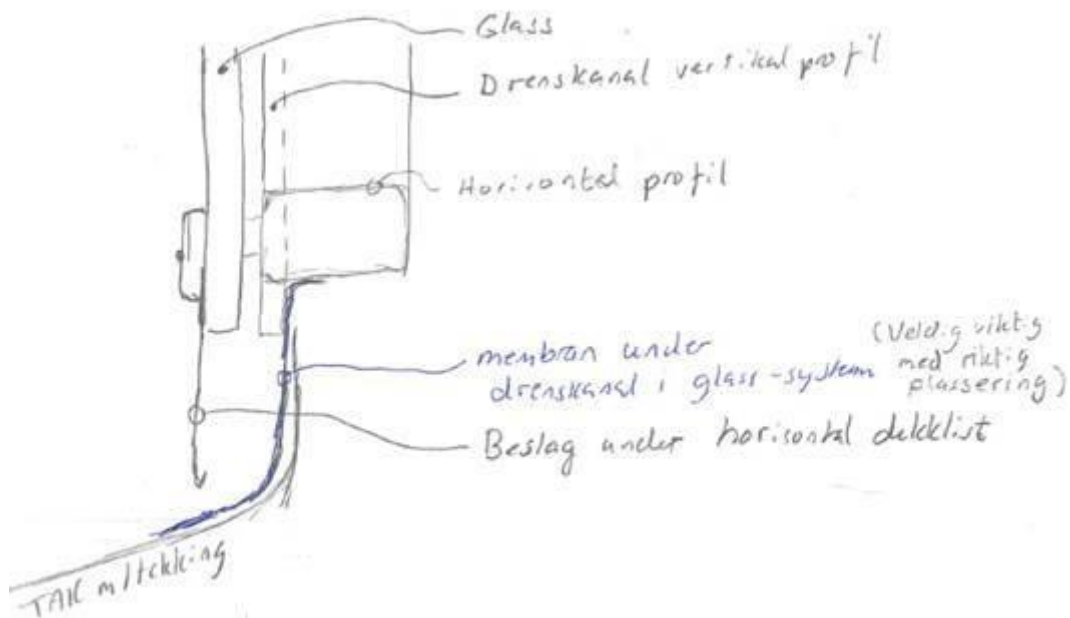 Glass
Drenskanal vertikal profil
Horisontal profil
membran under
drenskanal i glass-system
(Veldig viktig
med riktig
plassering)
Beslag under horisontal dekklist
TAK m/tekking